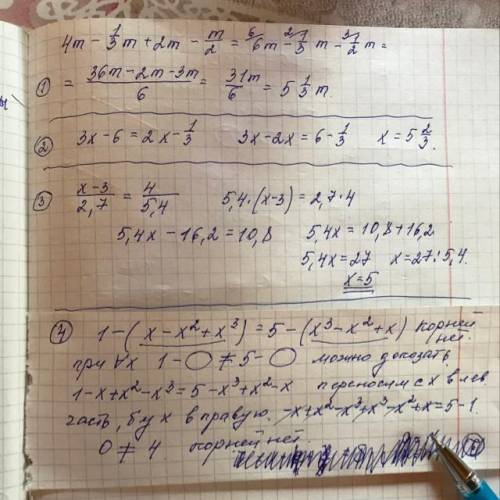 4m - 1/3 m + 2m - m/2 = 6m - 1/3 m - 1/2 m =
① = (36m - 2m - 3m)/6 = 31m/6 = 5 1/3 m.
② 3x - 6 = 2x - 1/3 3x - 2x = 6 - 1/3 x = 5 2/3.
③ (x-3)/2,7 = 4/5,4 5,4·(x-3) = 2,7·4
5,4x - 16,2 = 10,8 5,4x = 10,8 + 16,2
5,4x = 27 x = 27:5,4.
x = 5
④ 1-(x-x²+x³) = 5-(x³-x²+x) корней
нет.
при ∀x 1-○ ≠ 5-○ можно доказать
1-x+x²-x³ = 5-x³+x²-x переносим с x в лев.
часть, б/у x в правую. -x+x²-x³+x³-x²+x=5-1.
0 ≠ 4 корней нет.